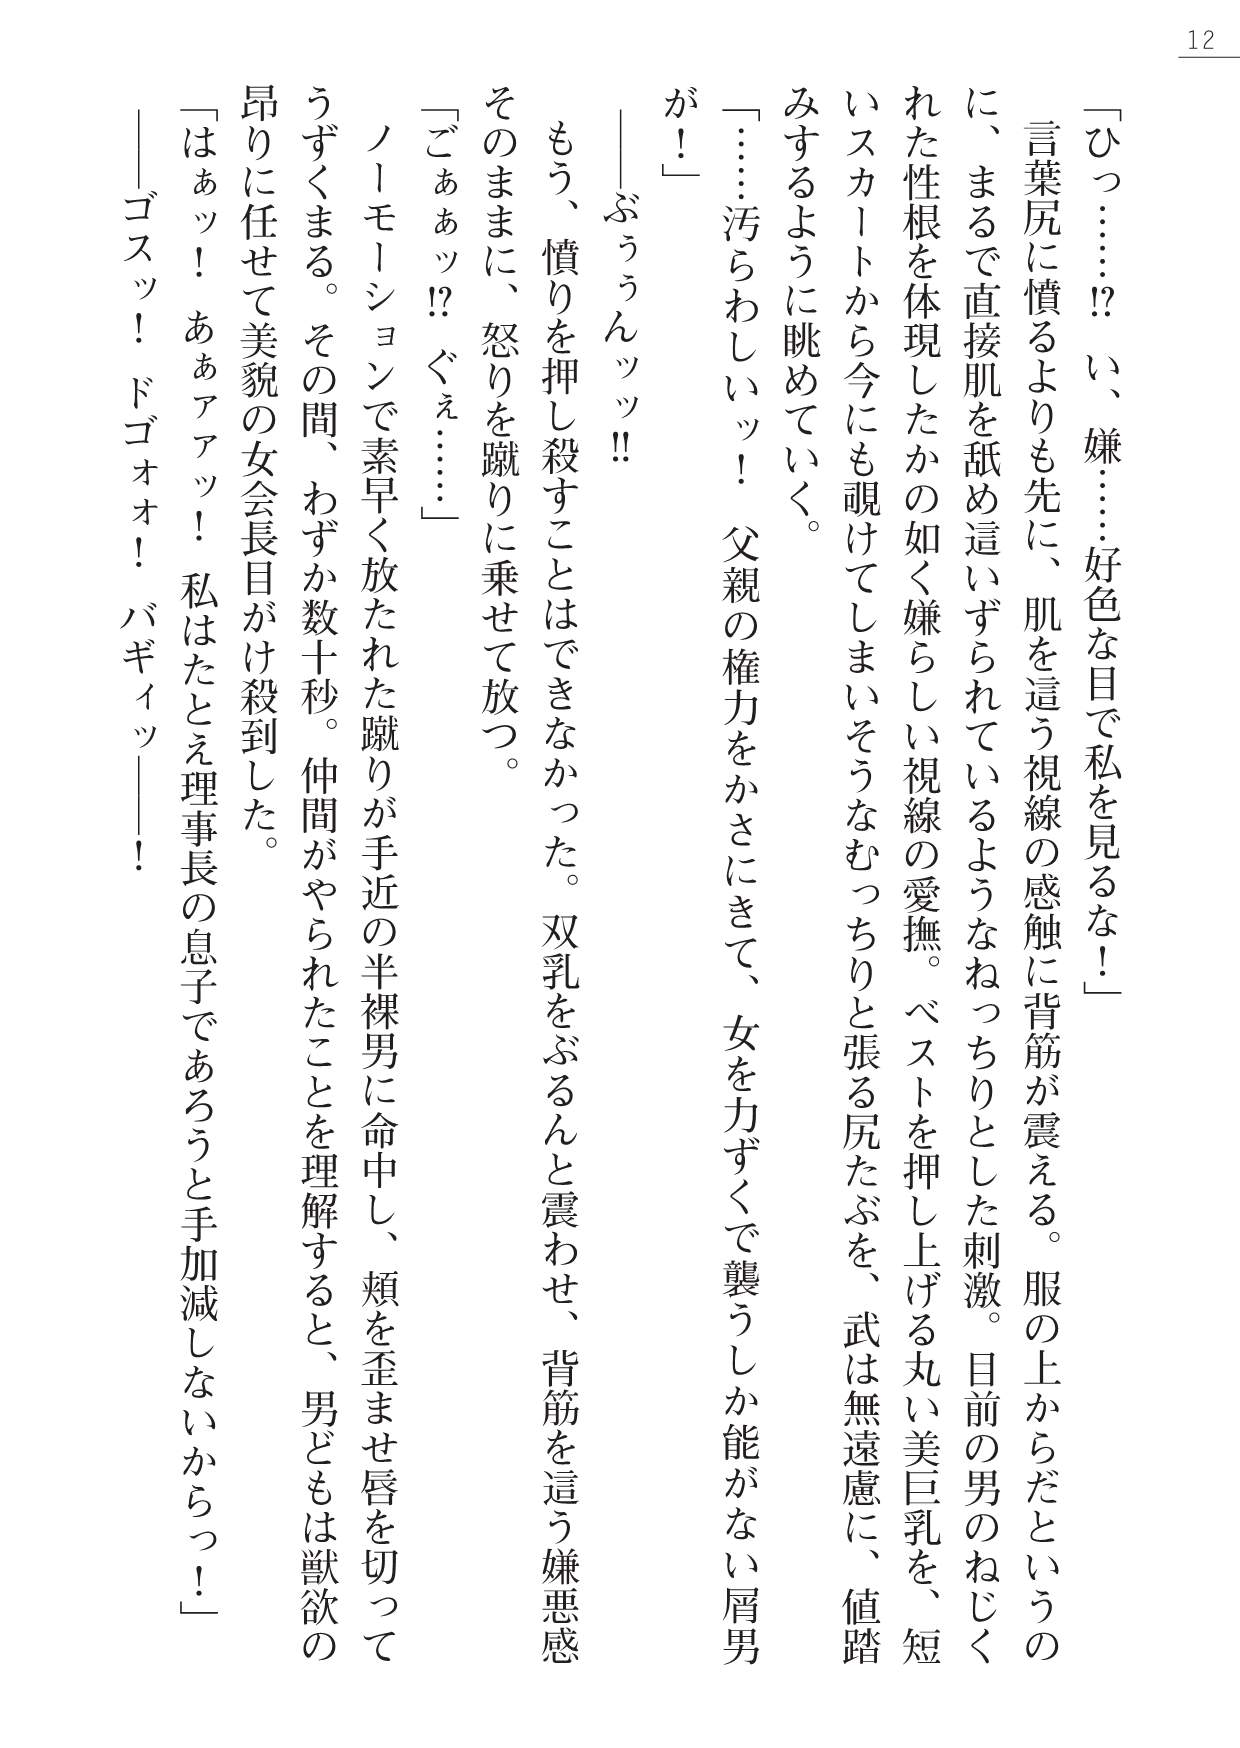 12
「ひっ……⁉　い、嫌……好色な目で私を見るな！」
　言葉尻に憤るよりも先に、肌を這う視線の感触に背筋が震える。服の上からだというの
に、まるで直接肌を舐め這いずられているようなねっちりとした刺激。目前の男のねじく
れた性根を体現したかの如く嫌らしい視線の愛撫。ベストを押し上げる丸い美巨乳を、短
いスカートから今にも覗けてしまいそうなむっちりと張る尻たぶを、武は無遠慮に、値踏
みするように眺めていく。
「……汚らわしいッ！　父親の権力をかさにきて、女を力ずくで襲うしか能がない屑男
が！」
　――ぶぅぅんッッ‼
　もう、憤りを押し殺すことはできなかった。双乳をぶるんと震わせ、背筋を這う嫌悪感
そのままに、怒りを蹴りに乗せて放つ。
「ごぁぁッ⁉　ぐぇ……」
　ノーモーションで素早く放たれた蹴りが手近の半裸男に命中し、頬を歪ませ唇を切って
うずくまる。その間、わずか数十秒。仲間がやられたことを理解すると、男どもは獣欲の
昂りに任せて美貌の女会長目がけ殺到した。
「はぁッ！　あぁァァッ！　私はたとえ理事長の息子であろうと手加減しないからっ！」
　――ゴスッ！　ドゴォォ！　バギィッ――！